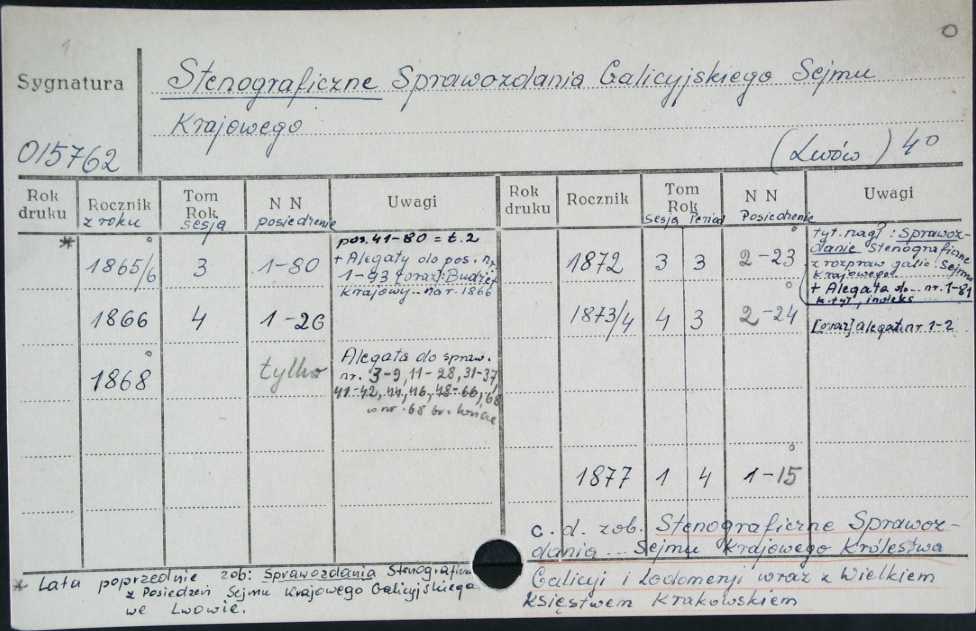 1
0
Sygnatura
Stenograficzne Sprawozdania Galicyjskiego Sejmu
Krajowego
015762
(Lwów) 4°
Rok druku | Rocznik z roku | Tom Rok sesja | N N posiedzenie | Uwagi | Rok druku | Rocznik | Tom Rok Sesja Period | N N Posiedzenie | Uwagi
* 1865/6 3 1-80
pos. 41-80 = t.2
+ Alegaty do pos. nr
1-93 [oraz]: Budżet
krajowy.. na r. 1866
1866 4 1-26
1868 tylko
Alegata do spraw.
nr. 3-9, 11-28, 31-37,
41-42, 44, 46, 48-66, 68
w nr. 68 br. końca
1872 3 3 2-23
tyt. nagł: Sprawoz-
danie stenograficzne
z rozpraw galic. Sejmu
Krajowego
+ Alegata do... nr. 1-81
k. tyt., indeks
1873/4 4 3 2-24
[oraz] alegat. nr. 1-2
1877 1 4 1-15
c. d. zob. Stenograficzne Sprawoz-
dania... Sejmu Krajowego Królestwa
Galicyi i Lodomeryi wraz z Wielkiem
Księstwem Krakowskiem
* Lata poprzednie zob: Sprawozdania Stenografic
z Posiedzeń Sejmu Krajowego Galicyjskiego
we Lwowie.